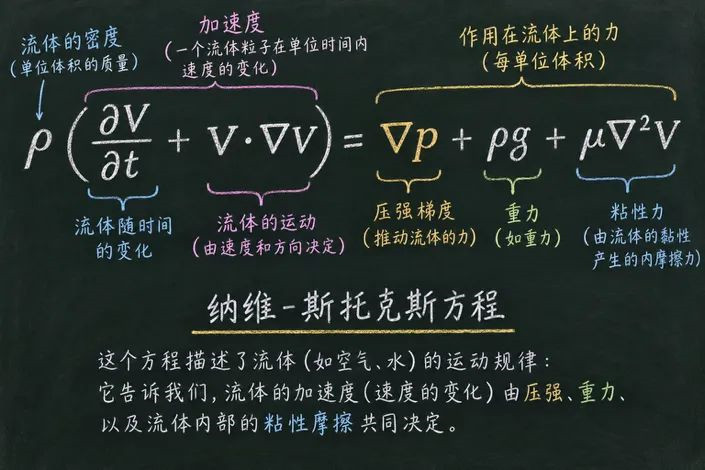 加速度
流体的密度
(单位体积的质量)
(一个流体粒子在单位时间内
速度的变化)
作用在流体上的力
(每单位体积)
ρ(∂V/∂t + V·∇V) = ∇p + ρg + μ∇²V
流体随时间
的变化
流体的运动
(由速度和方向决定)
压强梯度
(推动流体的力)
重力
(如重力)
粘性力
(由流体的黏性
产生的内摩擦力)
纳维-斯托克斯方程
这个方程描述了流体(如空气、水)的运动规律:
它告诉我们,流体的加速度(速度的变化)由压强、重力、
以及流体内部的粘性摩擦共同决定。